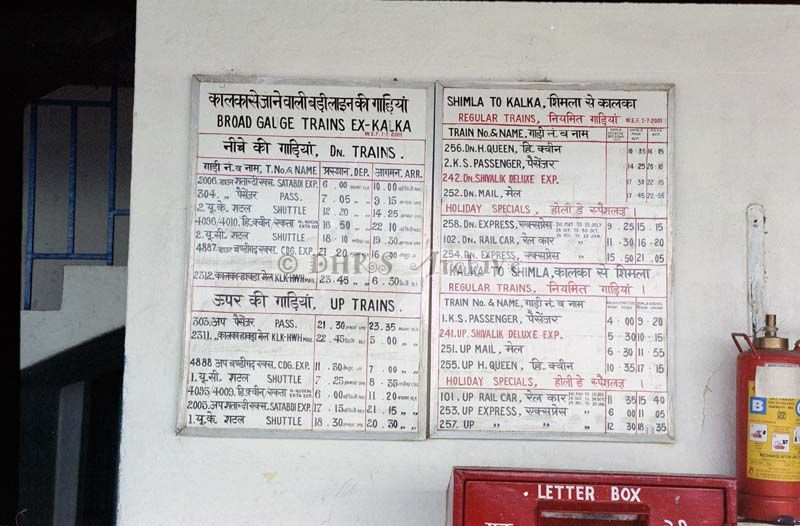 कालका से जाने वाली बड़ी लाइन की गाड़ियां
BROAD GAUGE TRAINS EX-KALKA
W.E.F. 1-7-2001
नीचे की गाड़ियां, DN. TRAINS.
गाड़ी नं. व नाम, T.No.& NAME प्रस्थान, DEP. आगमन, ARR.
2006. डाउन शताब्दी एक्स. SATABDI EXP. 6.00 10.00
304. ,, पैसेंजर PASS. 7.05 ,, 9.15
2. यू.के. शटल SHUTTLE 12.20 ,, 14.25
4096/4010. हि.क्वीन/ 16.50 ,, 22.10
2. यू.सी. शटल SHUTTLE 18.10 19.30
4887. डाउन चण्डीगढ़ एक्स. CDG. EXP. 21.20
2312. कालका हावड़ा मेल KLK-HWH MAIL 23.45 ,, 6.30
ऊपर की गाड़ियां, UP TRAINS.
303. अप पैसेंजर PASS. 21.30 23.35
2311. कालका हावड़ा मेल KLK-HWH MAIL 22.45 5.00 ,,
4888 अप चण्डीगढ़ एक्स. CDG. EXP. 11.30 7.00 ,,
1. यू.सी. शटल SHUTTLE 7.25 8.35
4095/4009. हि.क्वीन/ 6.00 11.20
2005. अप शताब्दी एक्स. SATABDI EXP. 17.15 21.15 ,,
1. यू.के. शटल SHUTTLE 18.30 20.30 ,,
SHIMLA TO KALKA, शिमला से कालका
REGULAR TRAINS, नियमित गाड़ियां W.E.F. 1-7-2001
TRAIN No.& NAME, गाड़ी नं. व नाम
256. DN. H. QUEEN, हि. क्वीन 10.35 16.15
2. K.S. PASSENGER, पैसेंजर 14.25 20.10
242. DN. SHIVALIK DELUXE EXP. 17.30 22.15
252. DN. MAIL, मेल 17.45 22.55
HOLIDAY SPECIALS, होलीडे स्पैशलज़
258. DN. EXPRESS, एक्सप्रेस 9.25 15.15
102. DN. RAIL CAR, रेल कार ,, 11.30 16.20
254. DN. EXPRESS, एक्सप्रेस 15.50 21.05
KALKA TO SHIMLA, कालका से शिमला
REGULAR TRAINS, नियमित गाड़ियां
TRAIN No.& NAME, गाड़ी नं. व नाम
1. K.S. PASSENGER, पैसेंजर 4.00 9.20
241. UP. SHIVALIK DELUXE EXP. 5.30 10.15
251. UP MAIL, मेल 6.30 11.55
255. UP H. QUEEN, हि. क्वीन 10.35 17.15
HOLIDAY SPECIALS, होलीडे स्पैशलज़
101. UP RAIL CAR, रेल कार 11.35 15.40
253. UP EXPRESS, एक्सप्रेस ,, 6.00 11.05
257. UP ,, ,, ,, 12.30 18.35
© DHRS Archive
LETTER BOX
B